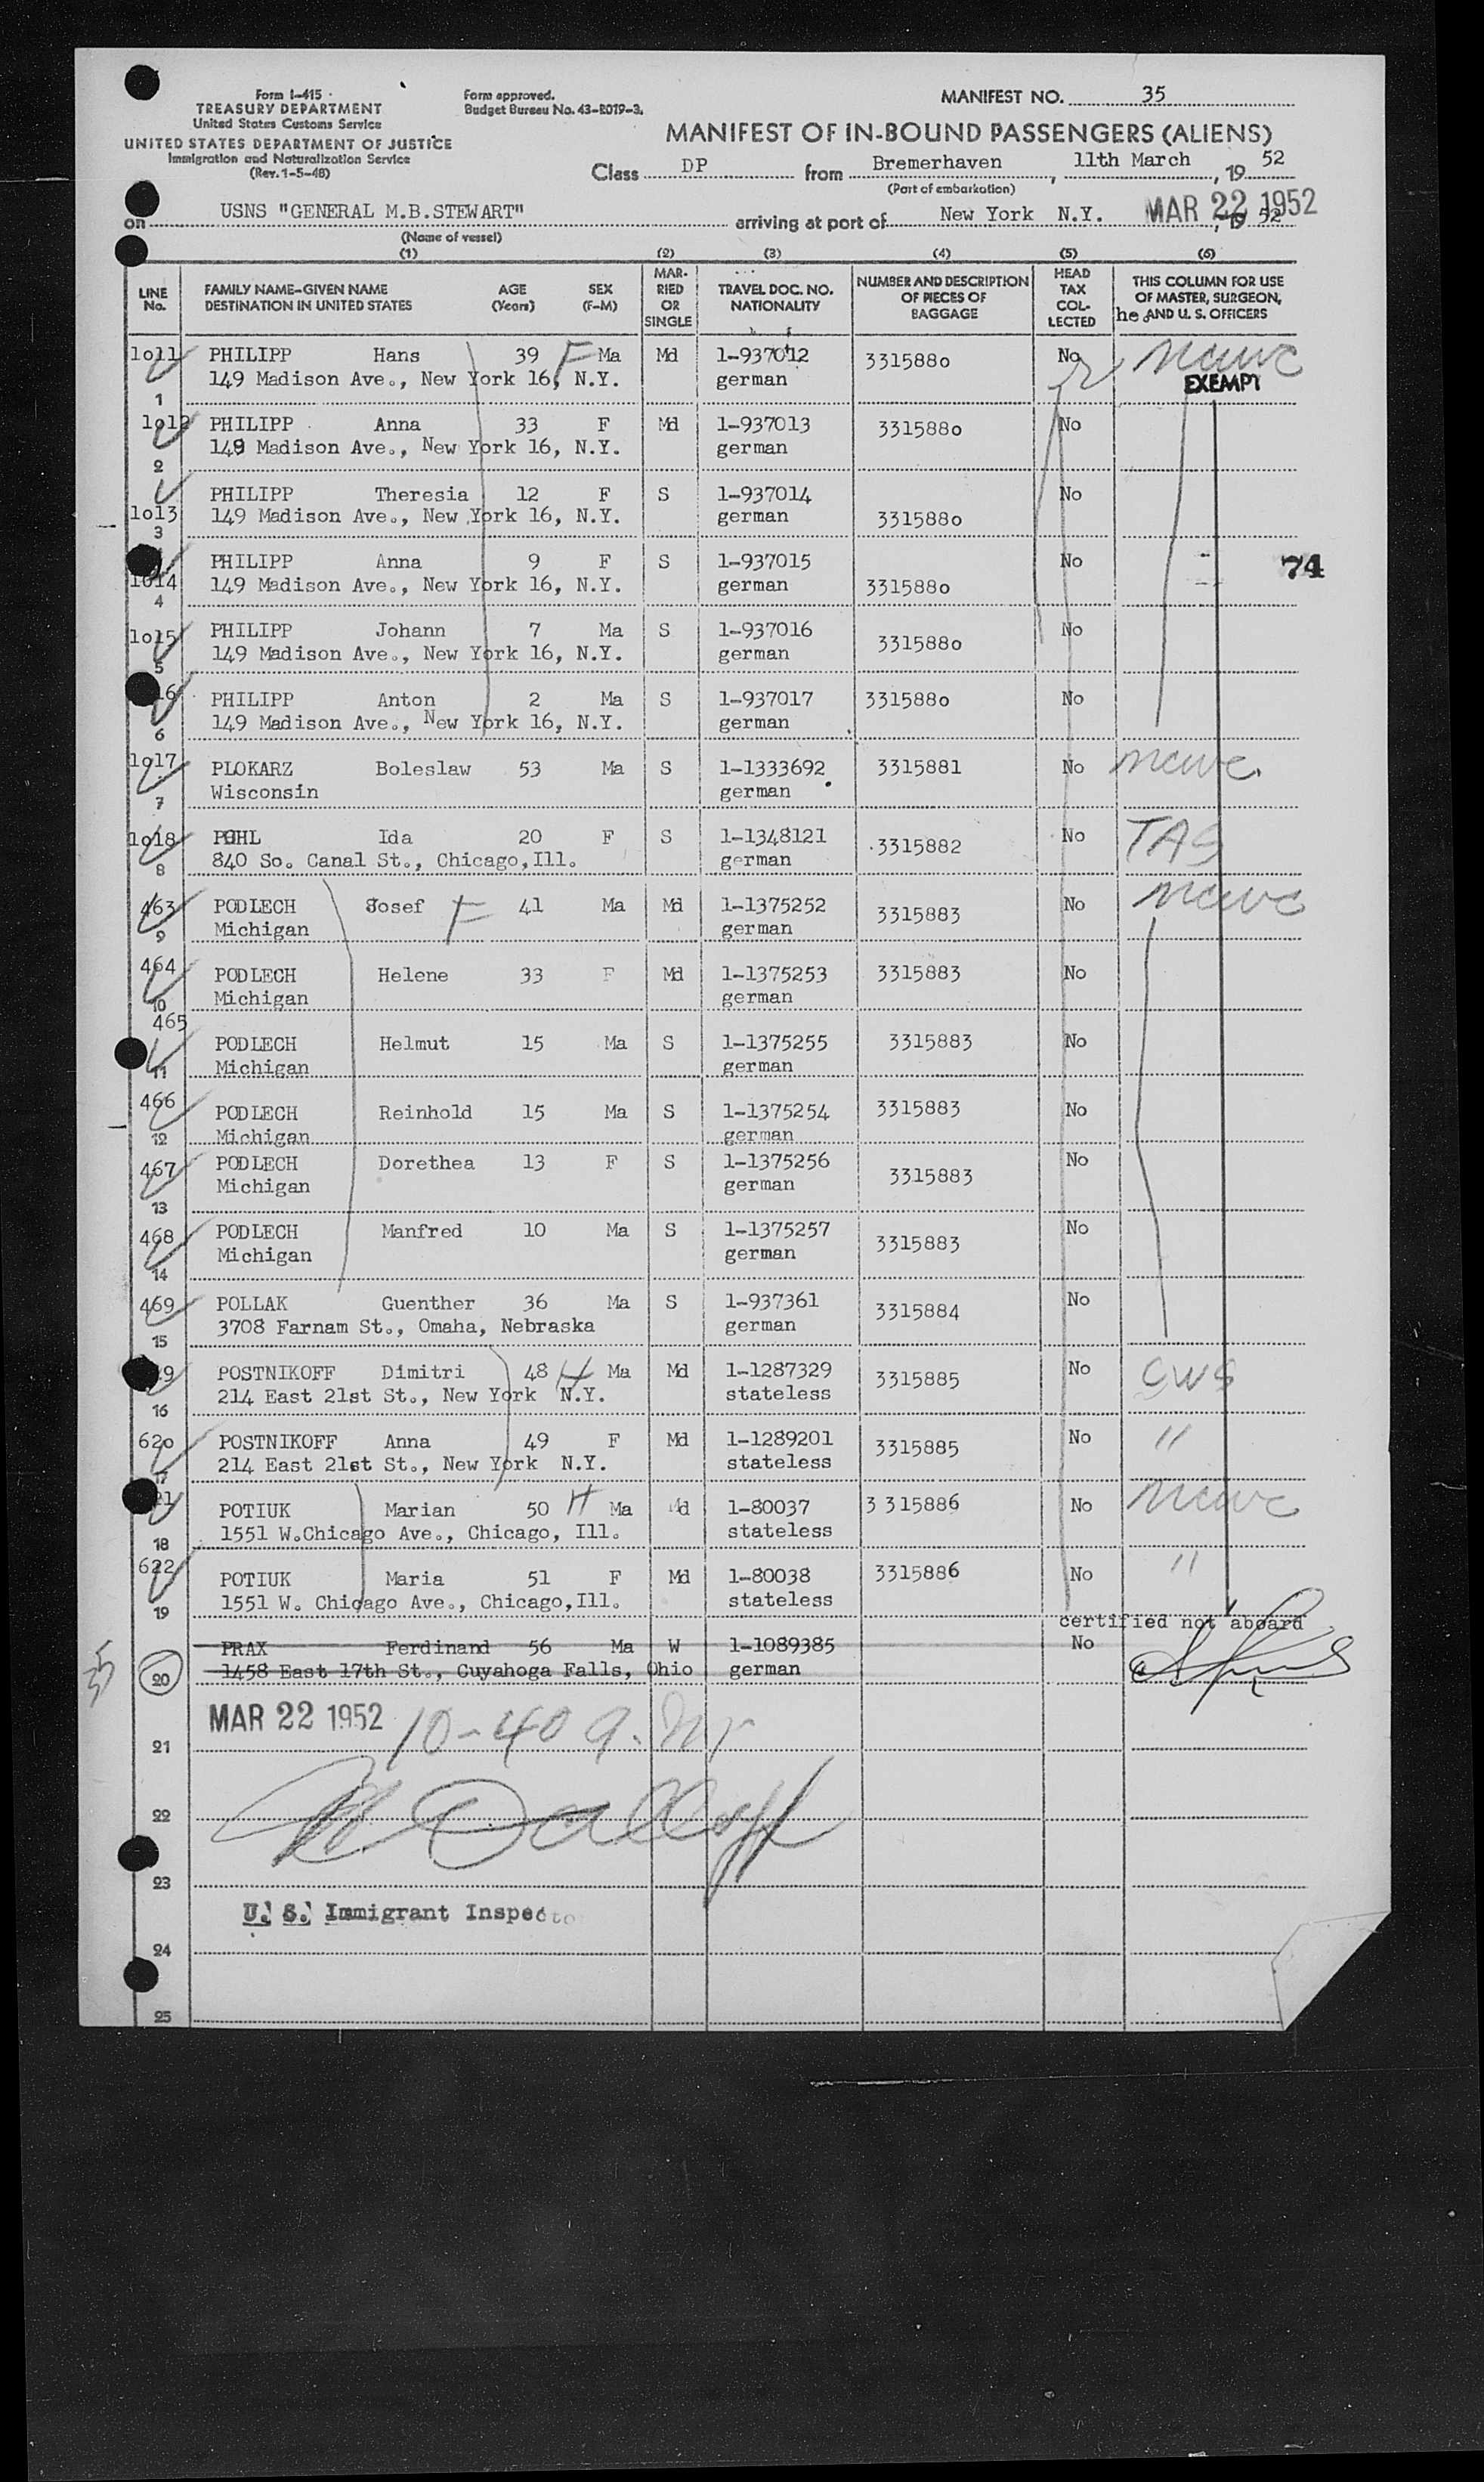 Form I-415
TREASURY DEPARTMENT
United States Customs Service
UNITED STATES DEPARTMENT OF JUSTICE
Immigration and Naturalization Service
(Rev. 1-5-48)
Form approved.
Budget Bureau No. 43-R019-3.
MANIFEST NO. 35
MANIFEST OF IN-BOUND PASSENGERS (ALIENS)
Class DP from Bremerhaven, 11th March, 19 52
(Port of embarkation)
on USNS "GENERAL M.B.STEWART" arriving at port of New York N.Y. MAR 22 1952, 19 52
(Name of vessel)
(1) (2) (3) (4) (5) (6)
LINE No. FAMILY NAME-GIVEN NAME DESTINATION IN UNITED STATES AGE (Years) SEX (F-M) MARRIED OR SINGLE TRAVEL DOC. NO. NATIONALITY NUMBER AND DESCRIPTION OF PIECES OF BAGGAGE HEAD TAX COLLECTED THIS COLUMN FOR USE OF MASTER, SURGEON, AND U. S. OFFICERS
1o11 PHILIPP Hans 39 F Ma Md 1-937012 331588o No ncwc
149 Madison Ave., New York 16, N.Y. german EXEMPT
1
1o12 PHILIPP Anna 33 F Md 1-937013 331588o No
149 Madison Ave., New York 16, N.Y. german
2
PHILIPP Theresia 12 F S 1-937014 No
1o13 149 Madison Ave., New York 16, N.Y. german 331588o
3
PHILIPP Anna 9 F S 1-937015 No 74
1o14 149 Madison Ave., New York 16, N.Y. german 331588o
4
1o15 PHILIPP Johann 7 Ma S 1-937016 331588o No
149 Madison Ave., New York 16, N.Y. german
5
16 PHILIPP Anton 2 Ma S 1-937017 331588o No
149 Madison Ave., New York 16, N.Y. german
6
1o17 PLOKARZ Boleslaw 53 Ma S 1-1333692 3315881 No ncwc
Wisconsin german
7
1o18 POHL Ida 20 F S 1-1348121 3315882 No TAS
840 So. Canal St., Chicago,Ill. german
8
463 PODLECH Josef F 41 Ma Md 1-1375252 3315883 No ncwc
Michigan german
9
464 PODLECH Helene 33 F Md 1-1375253 3315883 No
Michigan german
10
465 PODLECH Helmut 15 Ma S 1-1375255 3315883 No
Michigan german
11
466 PODLECH Reinhold 15 Ma S 1-1375254 3315883 No
Michigan german
12
467 PODLECH Dorethea 13 F S 1-1375256 3315883 No
Michigan german
13
468 PODLECH Manfred 10 Ma S 1-1375257 3315883 No
Michigan german
14
469 POLLAK Guenther 36 Ma S 1-937361 3315884 No
3708 Farnam St., Omaha, Nebraska german
15
POSTNIKOFF Dimitri 48 H Ma Md 1-1287329 3315885 No CWS
214 East 21st St., New York N.Y. stateless
16
62o POSTNIKOFF Anna 49 F Md 1-1289201 3315885 No "
214 East 21st St., New York N.Y. stateless
17
POTIUK Marian 50 H Ma Md 1-80037 3 315886 No ncwc
1551 W.Chicago Ave., Chicago, Ill. stateless
18
622 POTIUK Maria 51 F Md 1-80038 3315886 No "
1551 W. Chicago Ave., Chicago,Ill. stateless
19
certified not aboard
PRAX Ferdinand 56 Ma W 1-1089385 No
1458 East 17th St., Cuyahoga Falls, Ohio german
20
35
MAR 22 1952 10-40 a.m
21
22
23
U. S. Immigrant Inspector
24
25